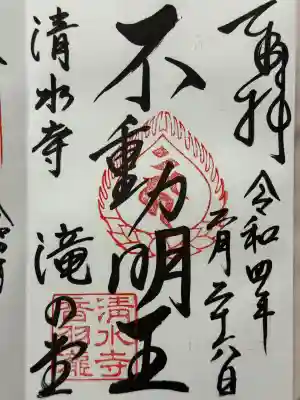 奉拝
令和四年
月二十六日
不動明王
清水寺
滝の堂
清水寺
音羽瀧